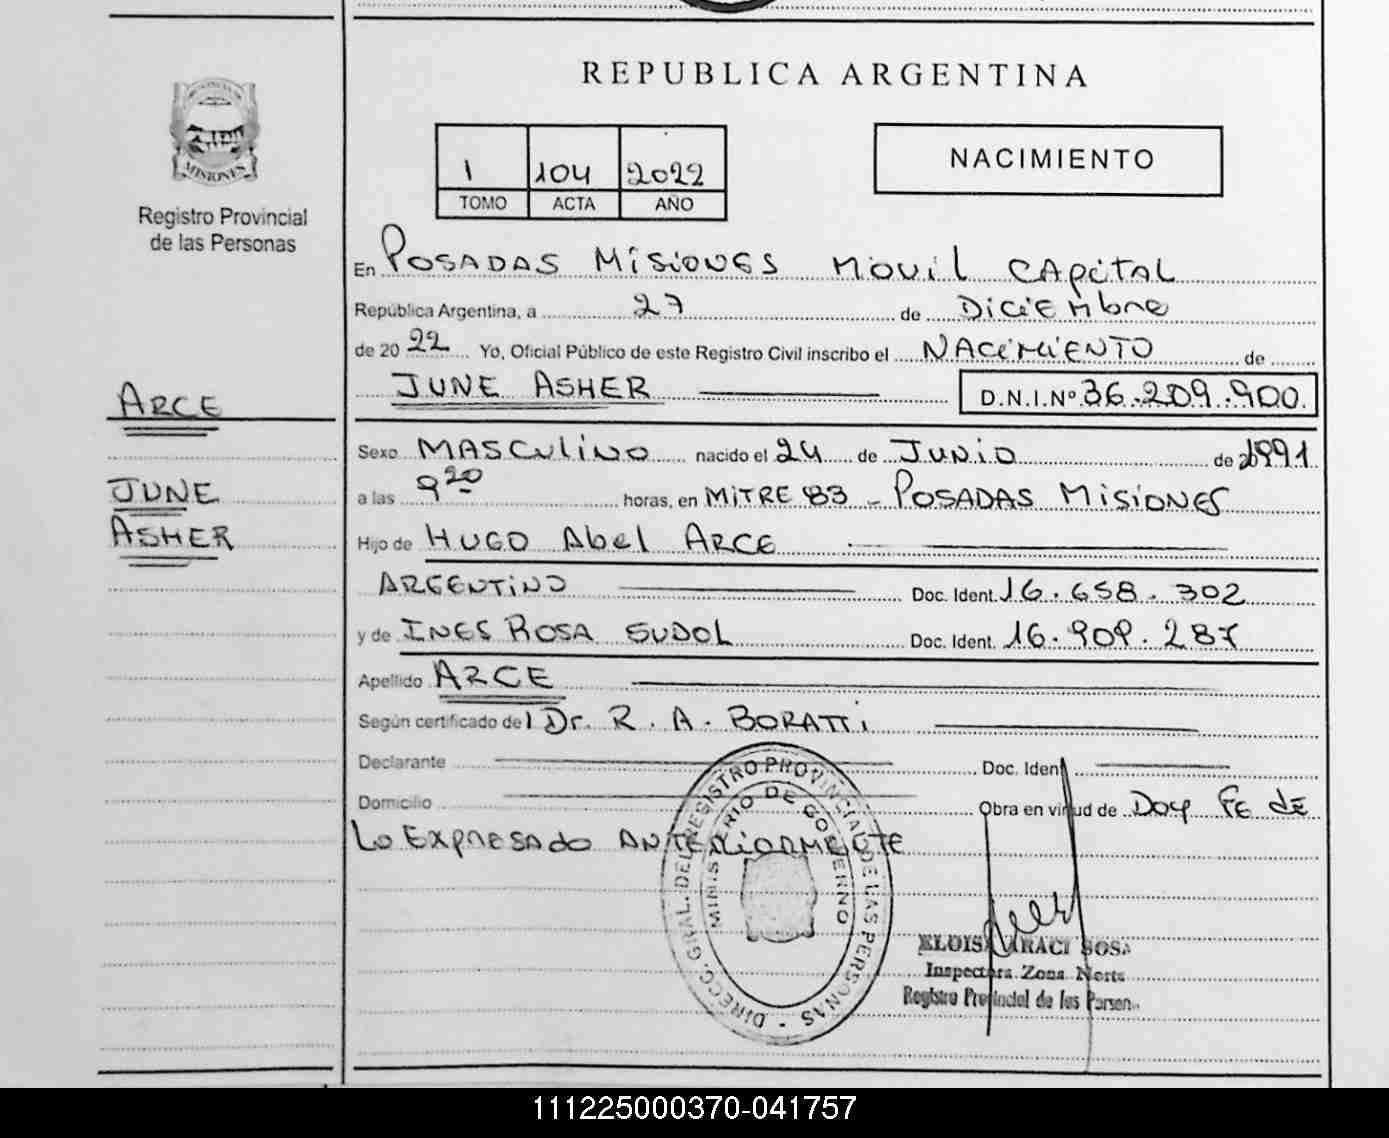 REPUBLICA ARGENTINA
MISIONES
Registro Provincial
de las Personas
1 104 2022
TOMO ACTA AÑO
NACIMIENTO
En POSADAS MISIONES MOVIL CAPITAL
República Argentina, a 27 de DICIEMBRE
de 2022 Yo, Oficial Público de este Registro Civil inscribo el NACIMIENTO de
JUNE ASHER D.N.I.Nº 36.209.900
ARCE
JUNE
ASHER
Sexo MASCULINO nacido el 24 de JUNIO de 1991
a las 9 20 horas, en MITRE 83 - POSADAS MISIONES
Hijo de HUGO Abel ARCE
ARGENTINO Doc. Ident. 16.658.302
y de INES ROSA SUDOL Doc. Ident. 16.909.287
Apellido ARCE
Según certificado del Dr. R. A. BORATTi
Declarante Doc. Ident
Domicilio Obra en virtud de Doy FE de
Lo EXPRESADO ANTERIORMENTE
DIRECC. GRAL. DEL REGISTRO PROVINCIAL DE LAS PERSONAS -
MINISTERIO DE GOBIERNO
ARACI SOSA
Inspectora Zona Norte
Registro Provincial de las Person
111225000370-041757